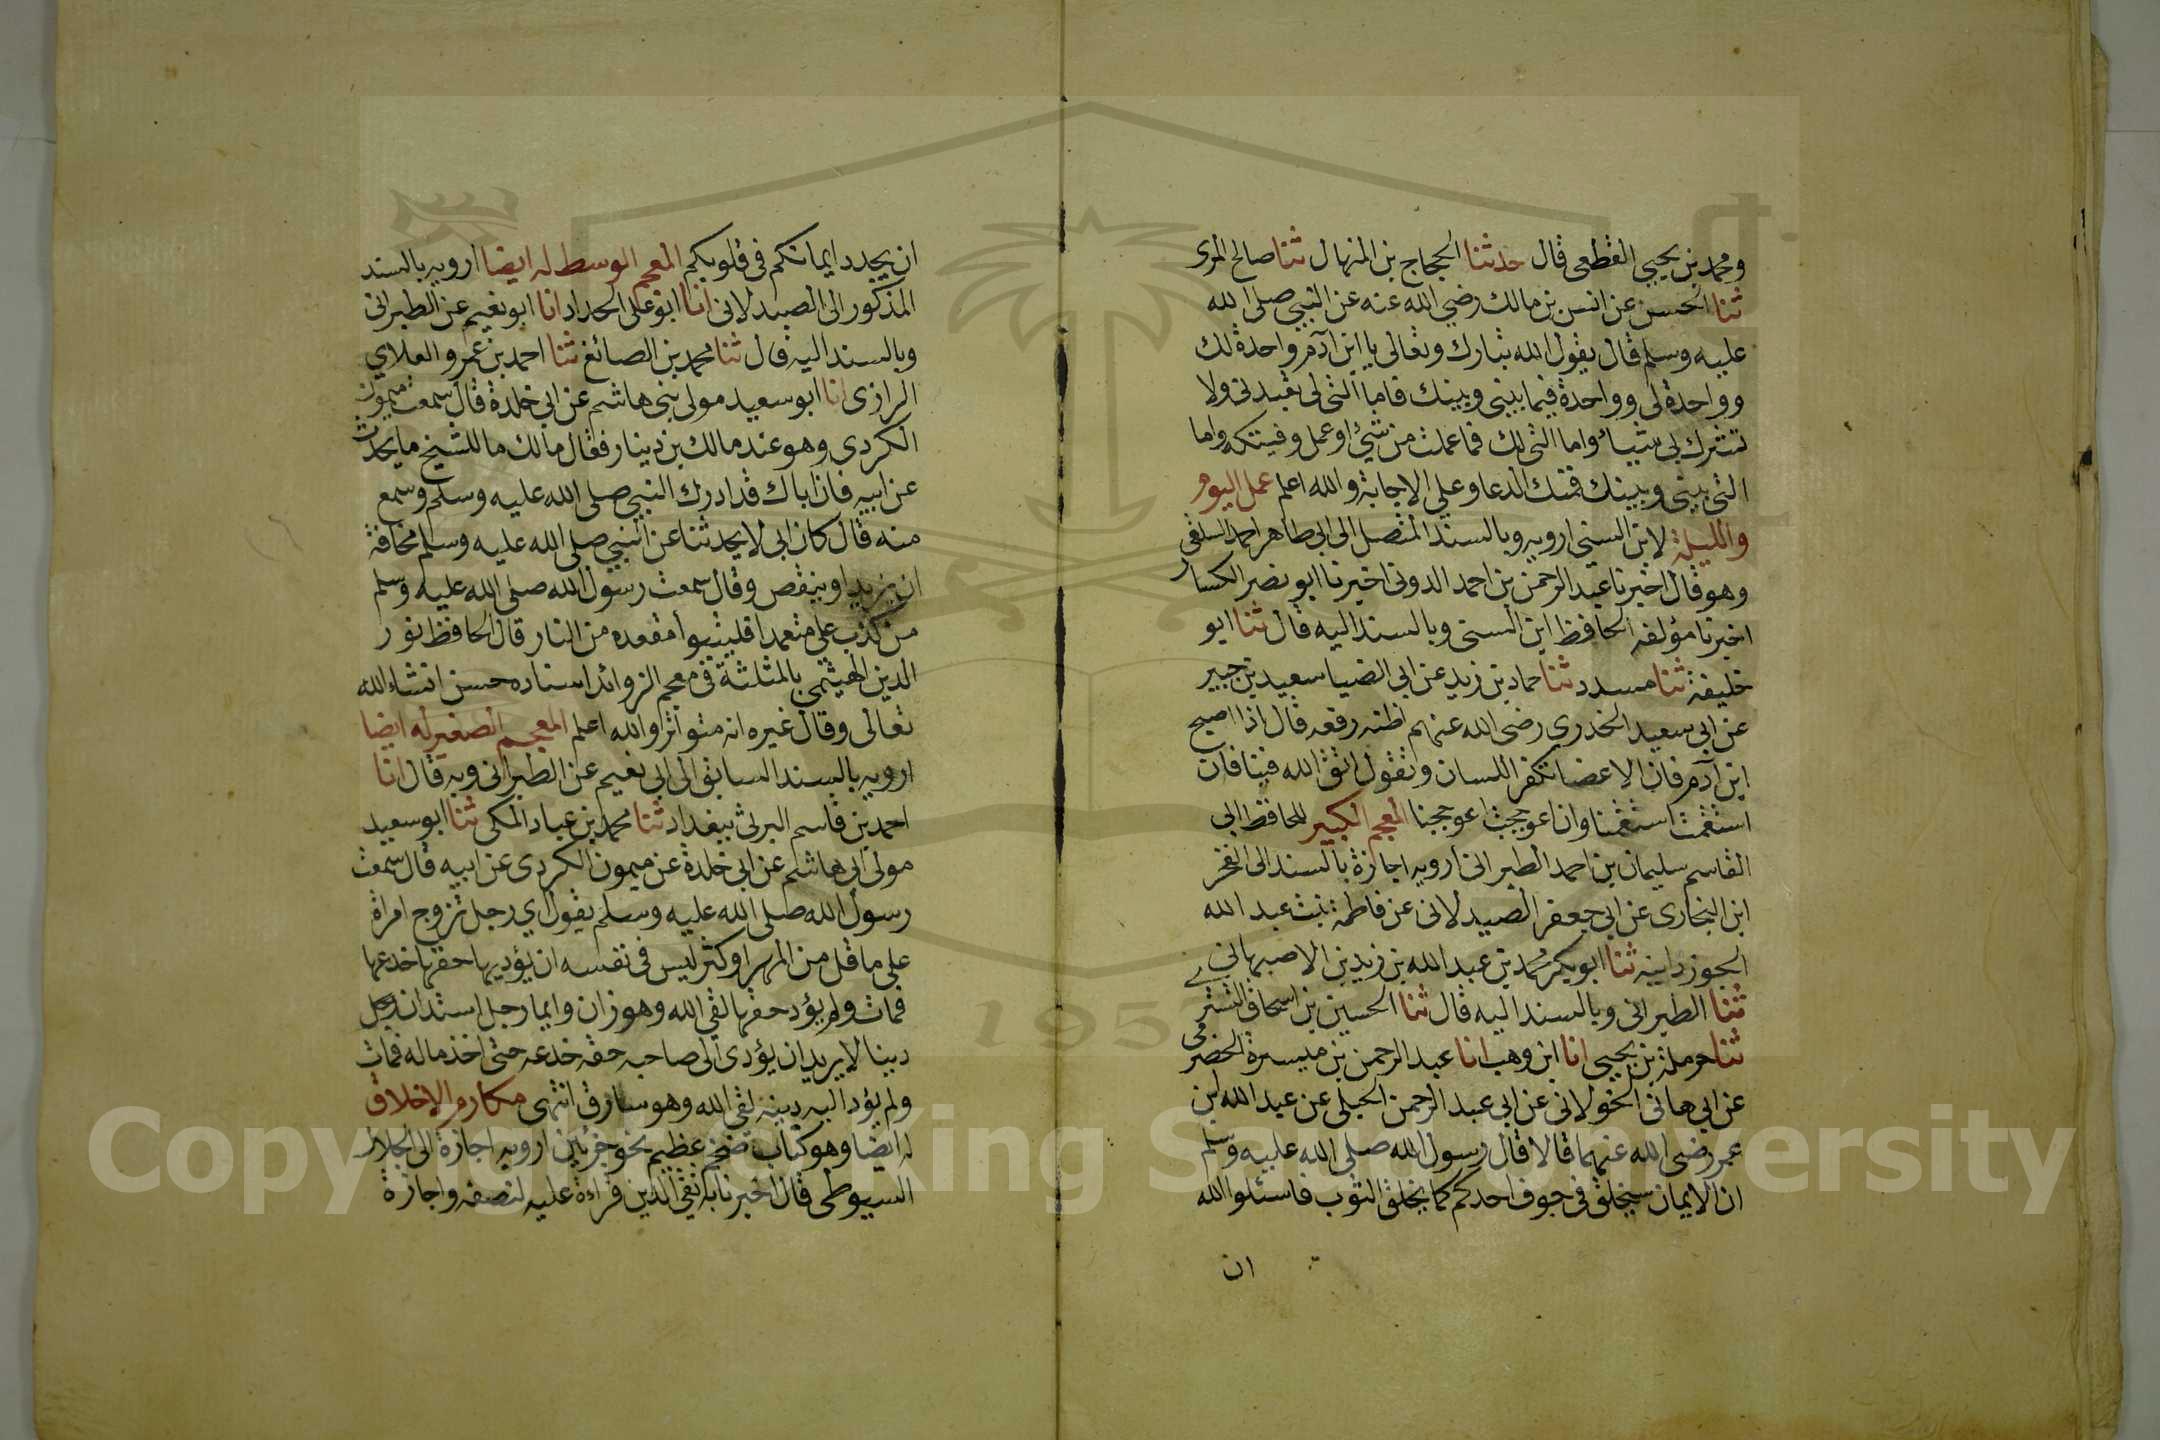 ومحمد بن يحيى القطعي قال حدثنا الحجاج بن المنهال ثنا صالح المرى
ثنا الحسن عن انس بن مالك رضي الله عنه عن النبي صلى الله
عليه وسلم قال يقول الله تبارك وتعالى يا ابن آدم واحدة لك
وواحدة لى وواحدة فيما بينى وبينك فاما التى لى تعبدنى ولا
تشرك بى شيئا واما التى لك فما عملت من شيئ اوعمل وفيتكه واما
التى بينى وبينك فمنك الدعا وعلي الاجابة والله اعلم عمل اليوم
والليلة لابن السنى ارويه وبالسند المتصل الى ابى طاهر احمد السلفى
وهو قال اخبرنا عبد الرحمن بن احمد الدونى اخبرنا ابو نصر الكسار
اخبرنا مؤلفه الحافظ ابن السنى وبالسند اليه قال ثنا ابو
خليفة ثنا مسدد ثنا حماد بن زيد عن ابى الضيا سعيد بن جبير
عن ابى سعيد الخدرى رضى الله عنهم اظنه رفعه قال اذا اصبح
ابن آدم فان الاعضا تكفر اللسان وتقول اتق الله فينا فان
استقمت استقمنا وان اعوججت اعوججنا المعجم الكبير للحافظ ابى
القاسم سليمان بن احمد الطبرانى ارويه اجازة بالسند الى الفخر
ابن البخارى عن ابى جعفر الصيدلانى عن فاطمة بنت عبد الله
الجوزدانيه ثنا ابو بكر محمد بن عبد الله بن زيد بن الاصبهانى
ثنا الطبرانى وبالسند اليه قال ثنا الحسين بن اسحاق التسترى
ثنا حرملة بن يحيى انا ابن وهب انا عبد الرحمن بن ميسرة الحضرمى
عن ابى هانى الخولانى عن ابى عبد الرحمن الحبلى عن عبد الله بن
عمر رضى الله عنهما قالا قال رسول الله صلى الله عليه وسلم
ان الايمان سيخلق فى جوف احدكم كما يخلق الثوب فاسئلوا الله
ان
ان يجدد ايمانكم فى قلوبكم المعجم الوسط له ايضا ارويه بالسند
المذكور الى الصيدلانى انا ابو على الحداد انا ابو نعيم عن الطبرانى
وبالسند اليه قال ثنا محمد بن الصائغ ثنا احمد بن عمرو العلاى
الرازى انا ابو سعيد مولى بنى هاشم عن ابى خلدة قال سمعت ميمون
الكردى وهو عند مالك بن دينار فقال مالك ما للشيخ ما يحدث
عن ابيه فان اباك قد ادرك النبى صلى الله عليه وسلم وسمع
منه قال كان ابى لا يحدثنا عن النبي صلى الله عليه وسلم مخافة
ان يزيد او ينقص وقال سمعت رسول الله صلى الله عليه وسلم
من كذب على متعمدا فليتبوأ مقعده من النار قال الحافظ نور
الدين الهيثمى بالمثلثة فى معجم الزوائد اسناده حسن انشاء الله
تعالى وقال غيره انه متواتر والله اعلم المعجم الصغير له ايضا
ارويه بالسند السابق الى ابى نعيم عن الطبرانى وبه قال انا
احمد بن قاسم البرتى ببغداد ثنا محمد بن عباد المكى ثنا ابو سعيد
مولى ابى هاشم عن ابى خلدة عن ميمون الكردى عن ابيه قال سمعت
رسول الله صلى الله عليه وسلم يقول اي رجل تزوج امراة
على ما قل من المهر او كثر ليس فى نفسه ان يؤديها حقها خدعها
فمات ولم يؤد حقها لقى الله وهو زان وايما رجل استدان
دينا لا يريد ان يؤدى الى صاحبه حقه خدعه حتى اخذ ماله فمات
ولم يؤد اليه دينه لقى الله وهو سارق انتهى مكارم الاخلاق
له ايضا وهو كتاب ضخم عظيم نحو جزئين ارويه اجازة الى الجلال
السيوطى قال اخبرنا به تقي الدين قراءة عليه لنصفه واجازة
Copyright © King Saud University
1957